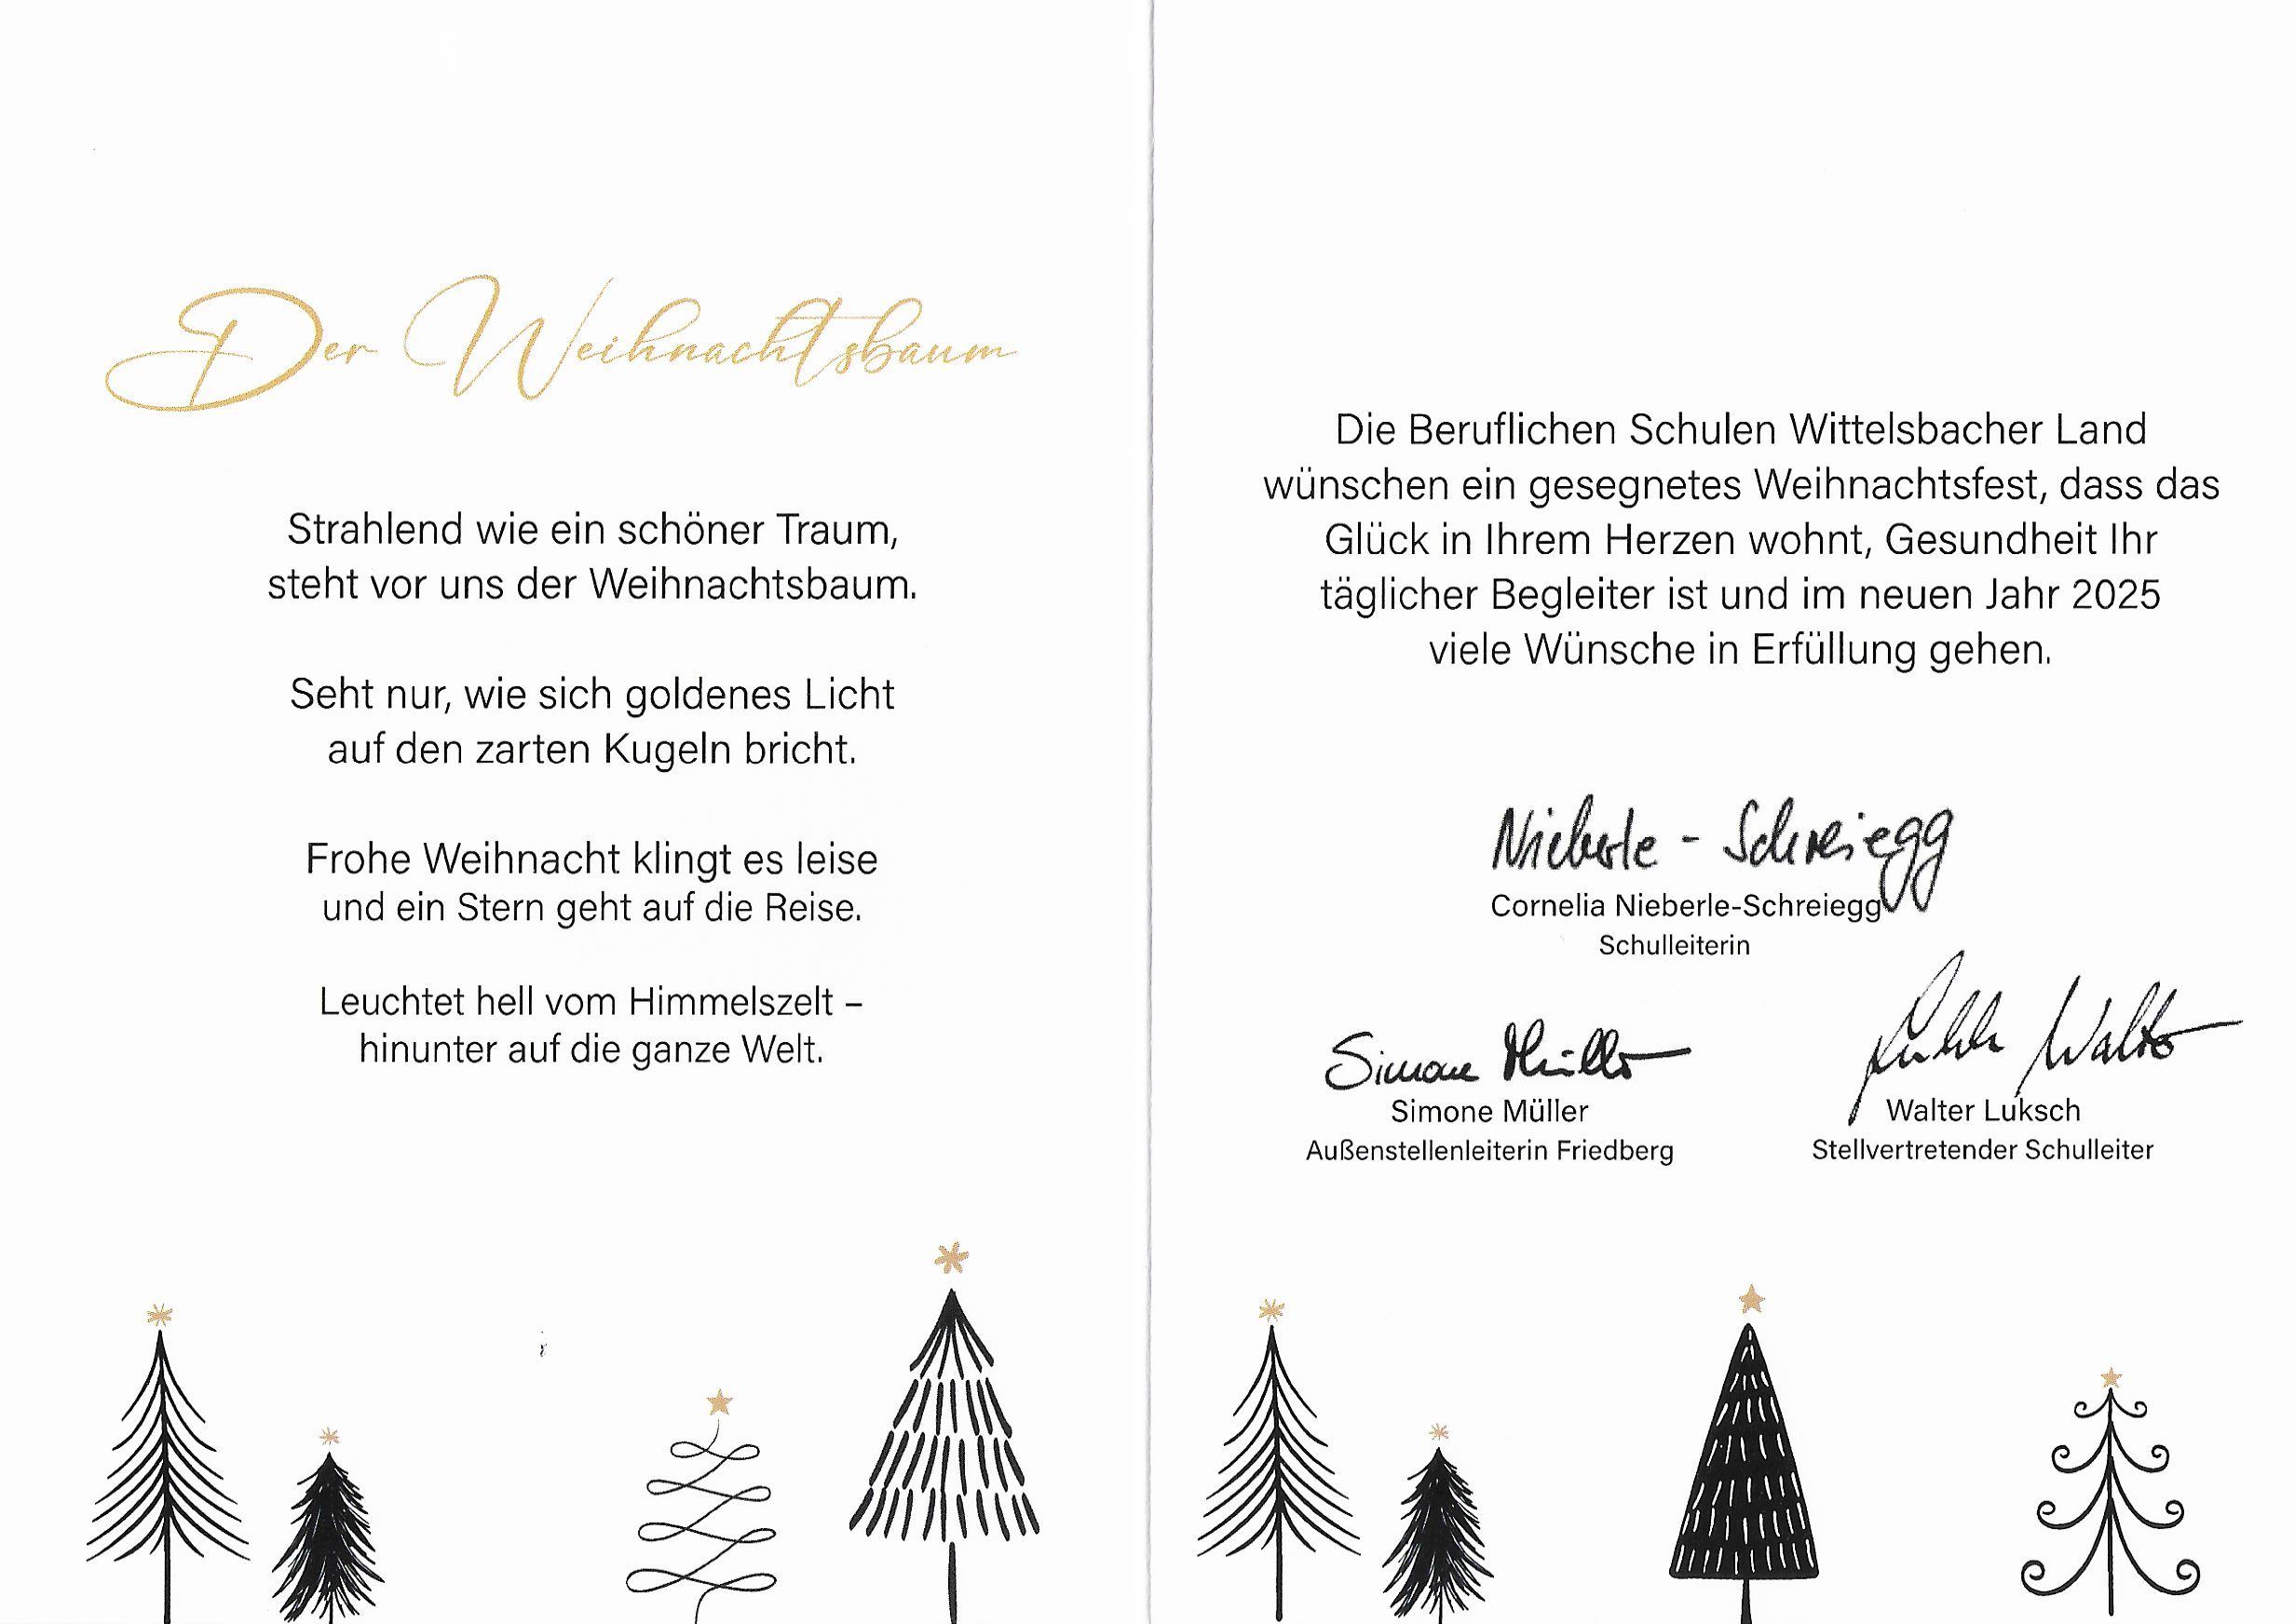 Der Weihnachtsbaum
Strahlend wie ein schöner Traum,
steht vor uns der Weihnachtsbaum.
Seht nur, wie sich goldenes Licht
auf den zarten Kugeln bricht.
Frohe Weihnacht klingt es leise
und ein Stern geht auf die Reise.
Leuchtet hell vom Himmelszelt –
hinunter auf die ganze Welt.
Die Beruflichen Schulen Wittelsbacher Land
wünschen ein gesegnetes Weihnachtsfest, dass das
Glück in Ihrem Herzen wohnt, Gesundheit Ihr
täglicher Begleiter ist und im neuen Jahr 2025
viele Wünsche in Erfüllung gehen.
Nieberle - Schreiegg
Cornelia Nieberle-Schreiegg
Schulleiterin
Simone Müller
Simone Müller
Außenstellenleiterin Friedberg
Luksch Walter
Walter Luksch
Stellvertretender Schulleiter